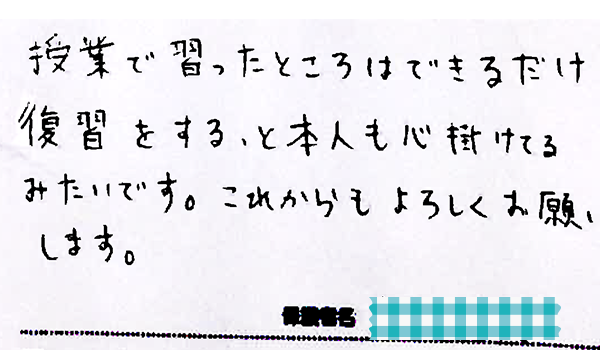 授業で習ったところはできるだけ
復習をする、と本人も心掛けてる
みたいです。これからもよろしくお願い
します。
保護者名